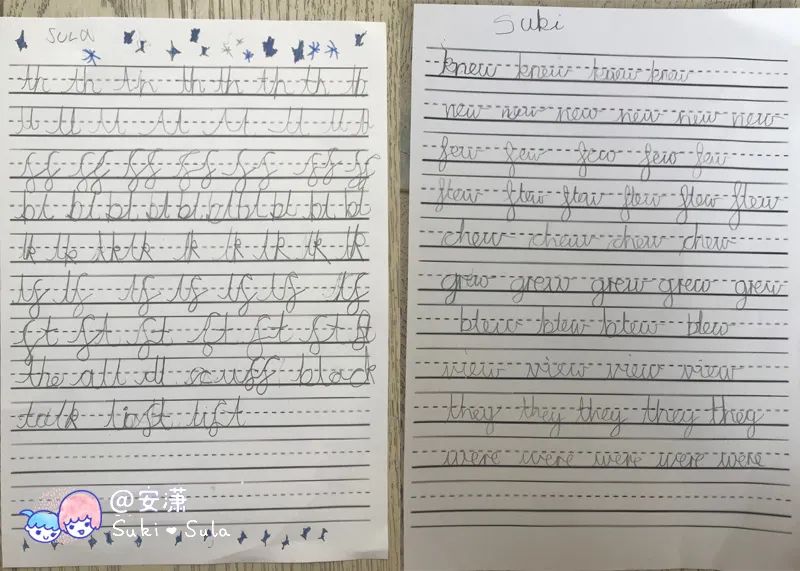 SULA
th th th th th th th th
ll ll ll ll ll ll ll ll
ff ff ff ff ff ff ff
bl bl bl bl bl bl bl bl bl bl
lk lk lk lk lk lk lk lk lk
lf lf lf lf lf lf lf
ft ft ft ft ft ft ft
the all ill scuff black
talk loft lift
@安潇
Suki Sula
Suki
knew knew knew knew
new new new new new new
few few few few few
flew flew flew flew flew flew
chew chew chew chew
grew grew grew grew grew
blew blew blew blew
view view view view
they they they they they
were were were were were